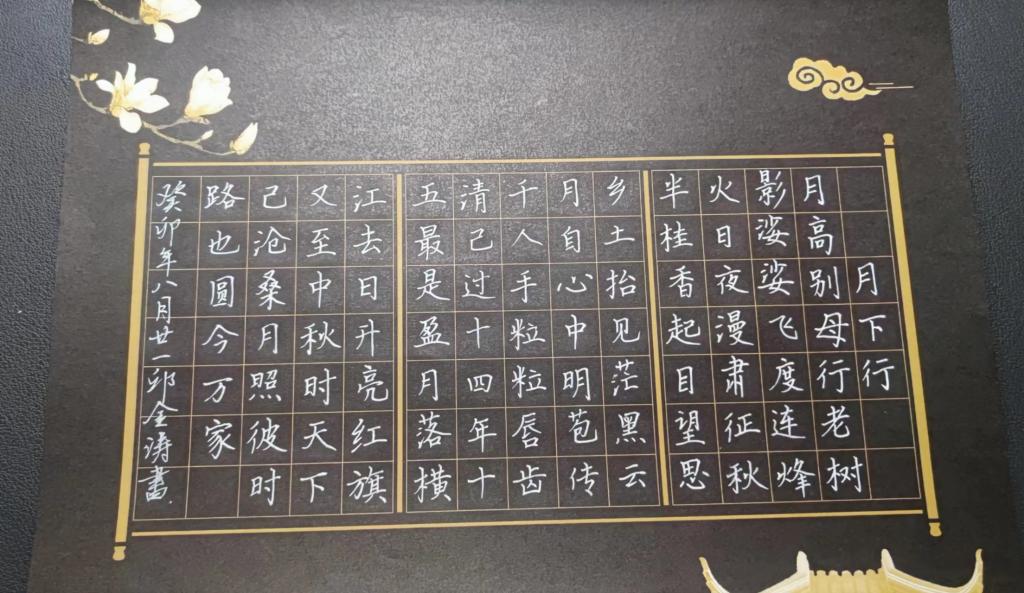 月下行
月高别母行老树
影娑娑飞度连烽
火日夜漫肃征秋
半桂香起目望思
乡土抬见茫黑云
月自心中明苞传
千人手粒粒唇齿
清己过十四年十
五最是盈月落横
江去日升亮红旗
又至中秋时天下
己沧桑月照彼时
路也圆今万家
癸卯年八月廿一卯金涛书